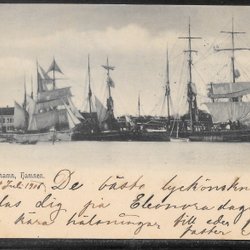 hamn, Hamnen.
Juli 1905. De bästa lyckönskn
as dig på Eleonoradag
kära hälsningar till eder
faster